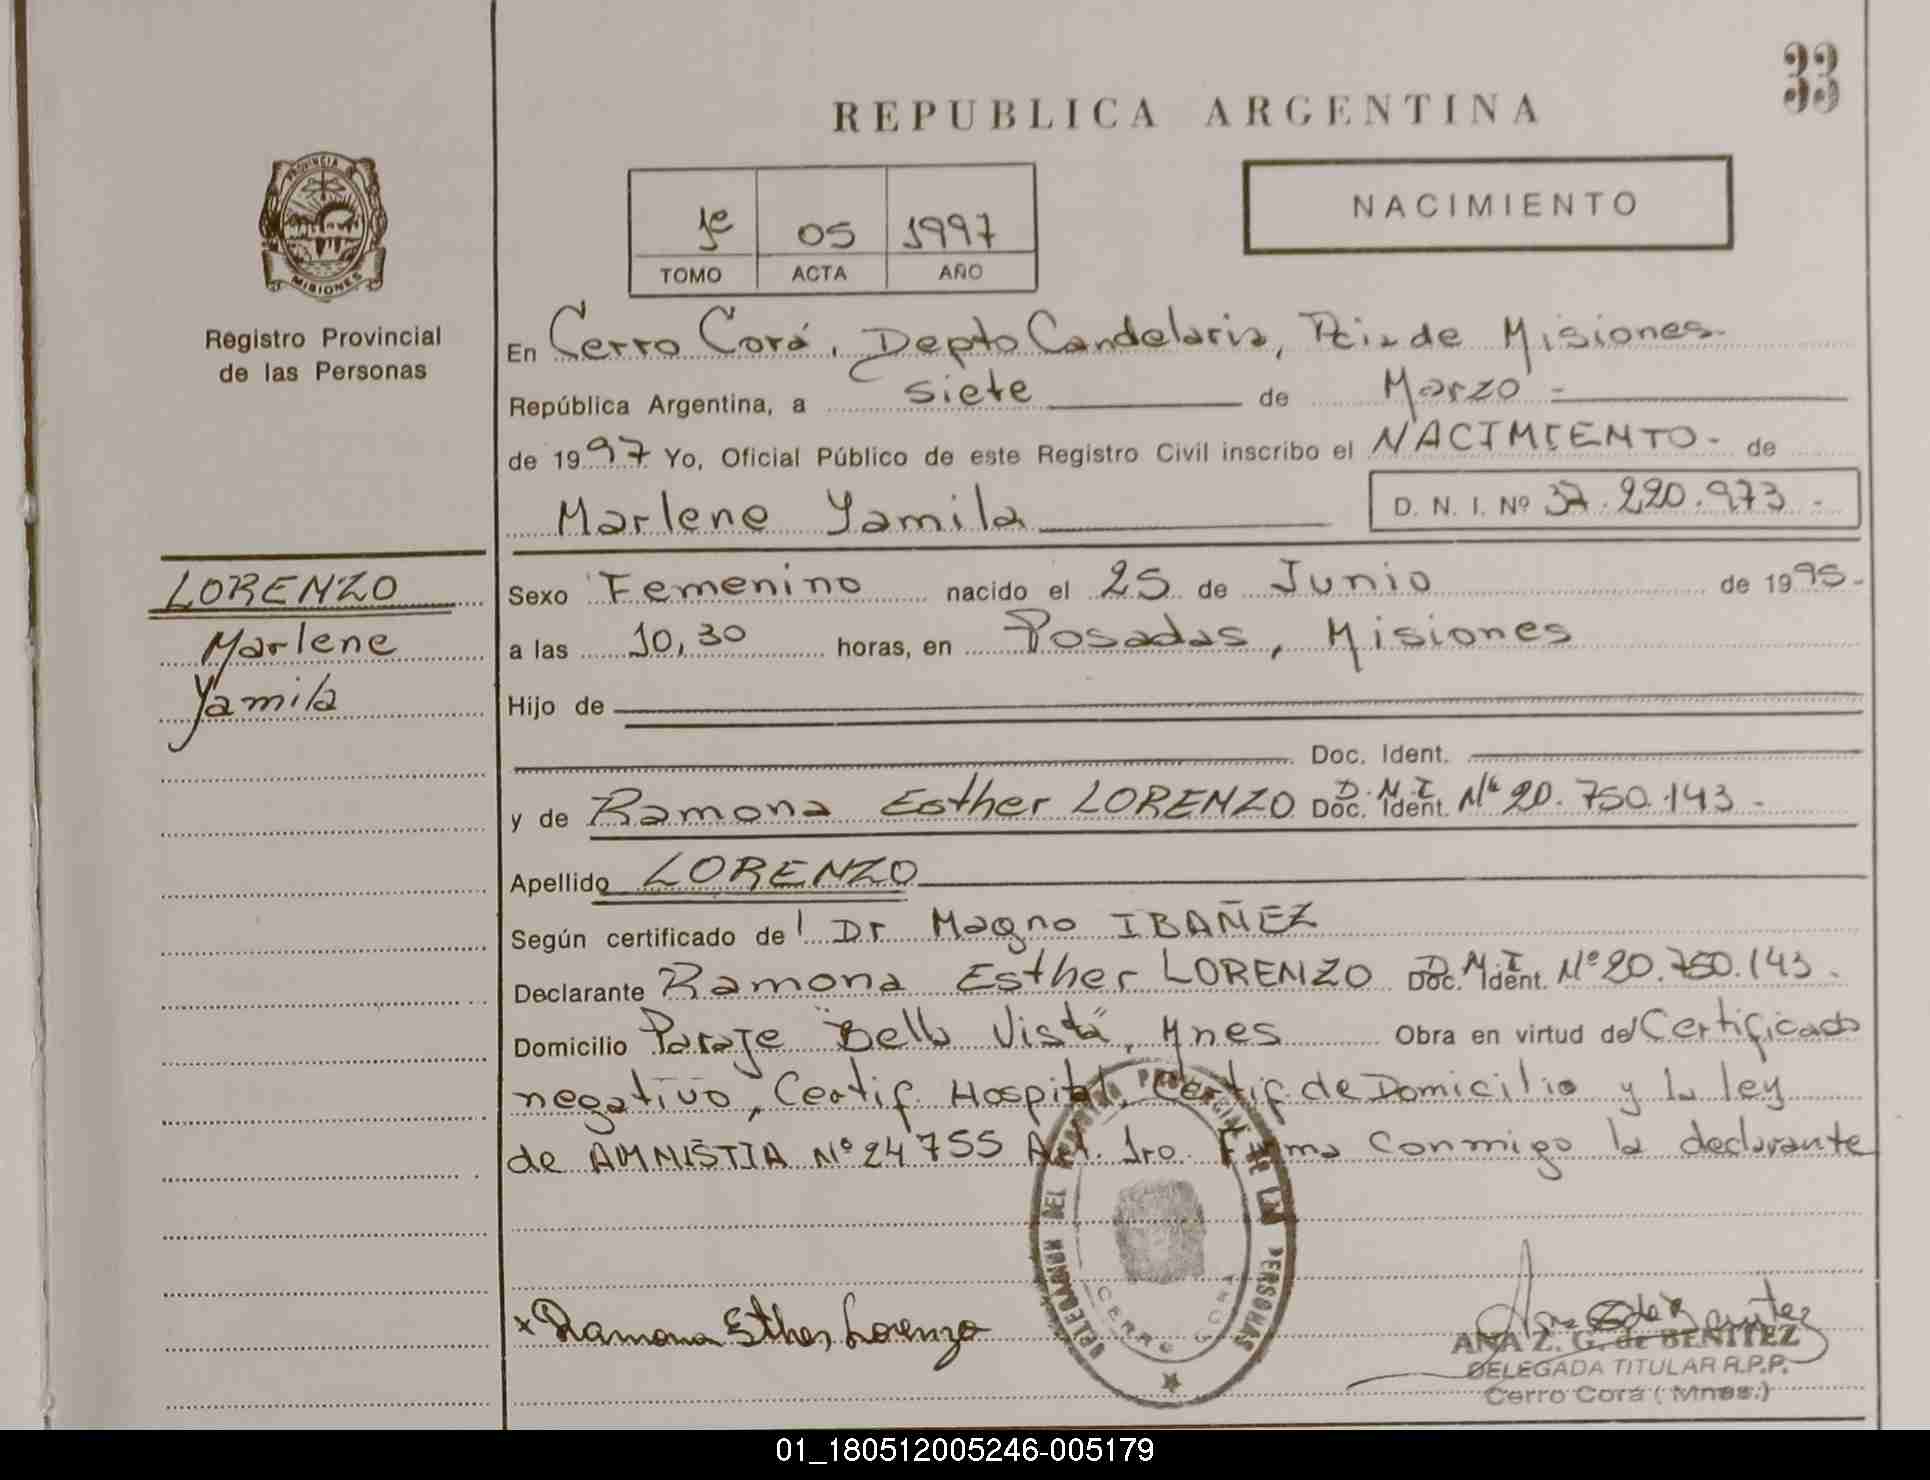 33
REPUBLICA ARGENTINA
PROVINCIA
MISIONES
Registro Provincial
de las Personas
1º 05 1997
TOMO ACTA AÑO
NACIMIENTO
En Cerro Corá, Depto Candelaria, Pcia de Misiones
República Argentina, a siete de Marzo
de 1997 Yo, Oficial Público de este Registro Civil inscribo el NACIMIENTO de
Marlene Yamila D. N. I. Nº 37.220.973
LORENZO
Marlene
Yamila
Sexo Femenino nacido el 25 de Junio de 1995
a las 10,30 horas, en Posadas, Misiones
Hijo de
Doc. Ident.
y de Ramona Esther LORENZO Doc. Ident. D.N.I Nº 20.750.143
Apellido LORENZO
Según certificado de Dr Magno IBAÑEZ
Declarante Ramona Esther LORENZO Doc. Ident. D.N.I Nº 20.750.143
Domicilio Paraje "Bella Vista", Mnes Obra en virtud del Certificado
negativo, Certif. Hospital, Certif. de Domicilio y la ley
de AMNISTIA Nº 24755 Art. 1ro. Firma conmigo la declarante
DEL REGISTRO PROVINCIAL DE LAS PERSONAS
CERRO CORA
x Ramona Esther Lorenzo
ANA Z. G. de BENITEZ
DELEGADA TITULAR R.P.P.
Cerro Corá (Mnes.)
01_180512005246-005179